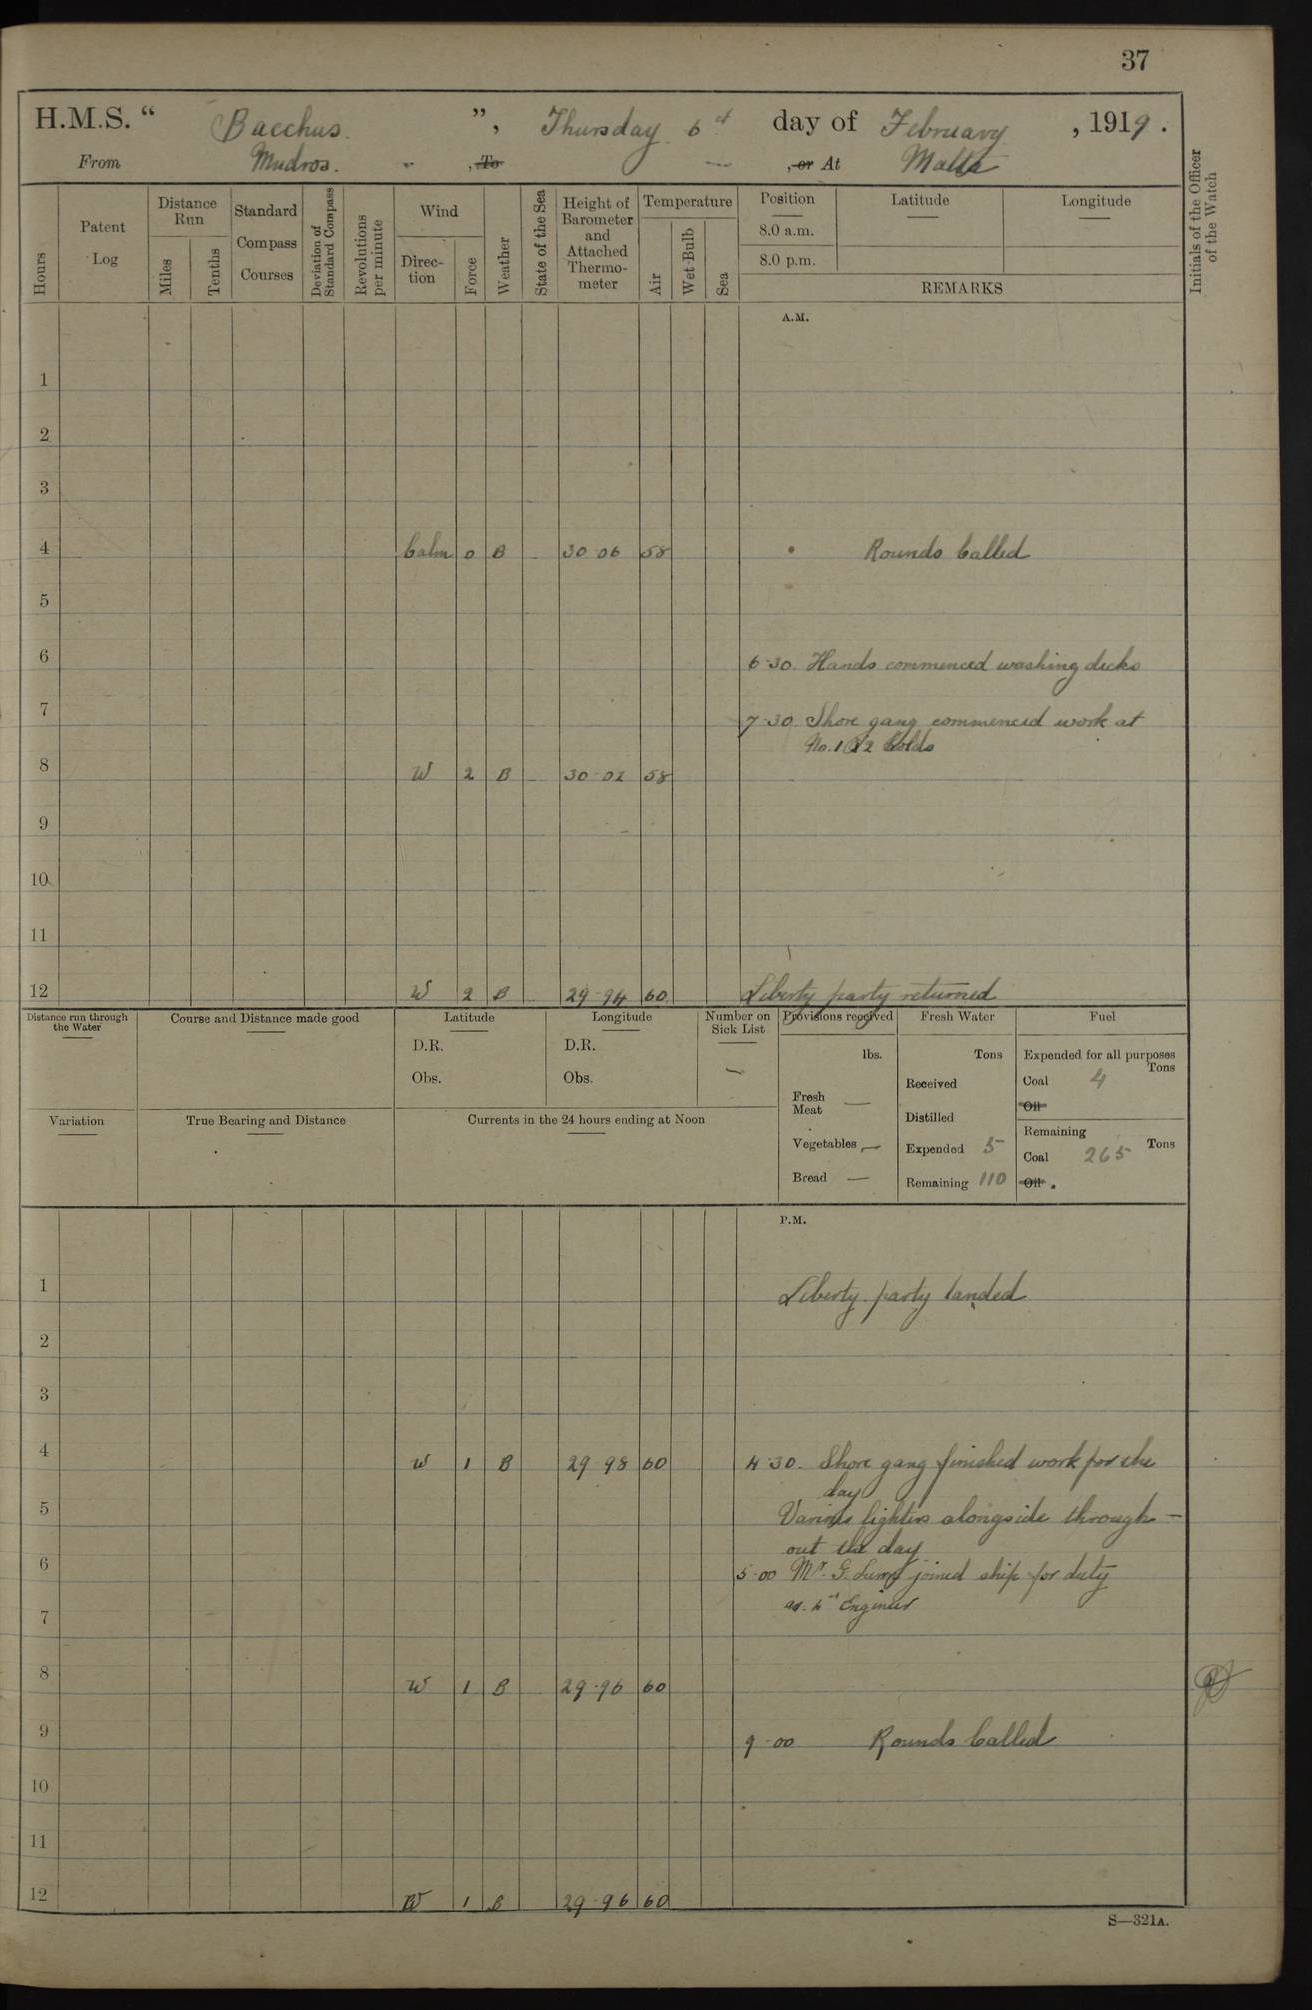 37
H.M.S. “ Bacchus. ”, Thursday 6th day of February, 1919.
From Mudros. - , To — , or At Malta
Hours
Patent Log
Distance Run
Miles
Tenths
Standard Compass Courses
Deviation of Standard Compass
Revolutions per minute
Wind
Direction
Force
Weather
State of the Sea
Height of Barometer and Attached Thermometer
Temperature
Air
Wet-Bulb
Sea
Position
8.0 a.m.
8.0 p.m.
Latitude
Longitude
REMARKS
Initials of the Officer of the Watch
A.M.
1
2
3
4 Calm 0 B 30·06 58 Rounds Called
5
6 6·30. Hands commenced washing decks
7 7·30. Shore gang commenced work at
No. 1 & 2 holds
8 W 2 B 30·02 58
9
10
11
12 W 2 B 29·94 60 Liberty party returned
Distance run through the Water
Course and Distance made good
Latitude
D.R.
Obs.
Longitude
D.R.
Obs.
Number on Sick List
—
Variation
True Bearing and Distance
Currents in the 24 hours ending at Noon
Provisions received
lbs.
Fresh Meat —
Vegetables —
Bread —
Fresh Water
Tons
Received
Distilled
Expended 5
Remaining 110
Fuel
Expended for all purposes
Tons
Coal 4
Oil
Remaining
Tons
Coal 265
Oil
P.M.
1 Liberty party landed
2
3
4 W 1 B 29·98 60 4·30. Shore gang finished work for the
day
5 Various lighters alongside through-
out the day
6 5·00 Mr. G. joined ship for duty
as 4th Engineer
7
8 W 1 B 29·96 60
9 9·00 Rounds Called
10
11
12 W 1 B 29·96 60
S—321A.